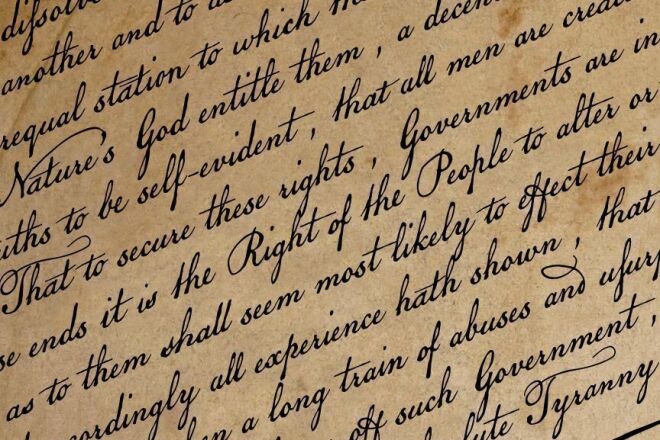 dissolve
another and to
requal station to which
Nature's God entitle them , a decent
uths to be self-evident , that all men are crea
That to secure these rights , Governments are in
se ends it is the Right of the People to alter or
as to them shall seem most likely to effect their
cordingly all experience hath shown , that
n a long train of abuses and usurp
off such Government ,
lute Tyranny